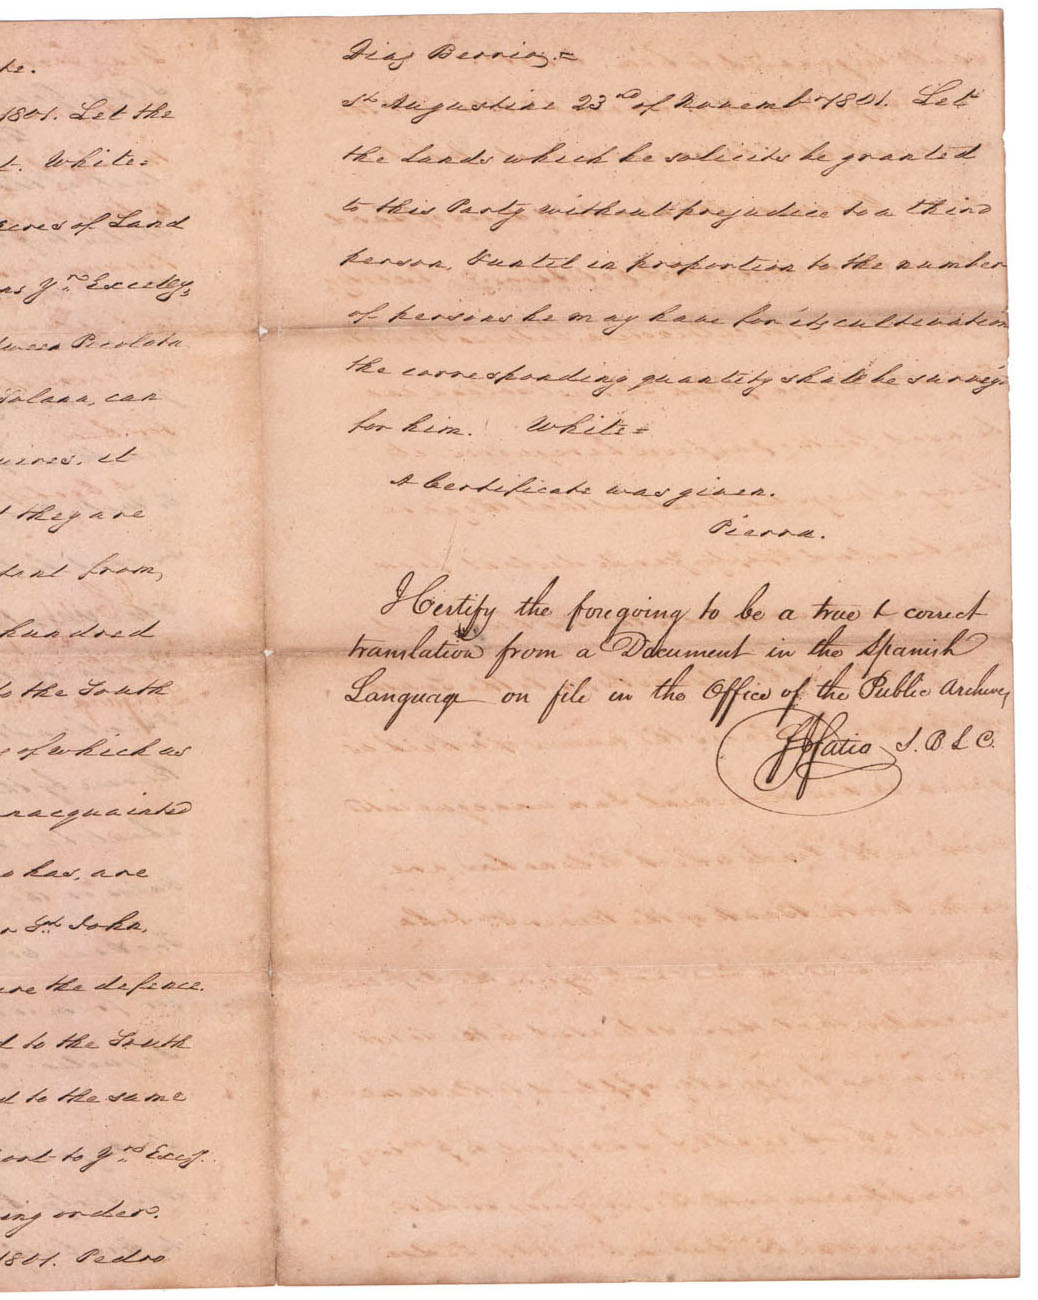 te.
1801. Let the
t. White=
cres of Land
as Yr. Excelly,
tween Picolata
Solana, can
uires. it
t they are
tant from,
hundred
to the South
e of which as
nacquainted
o has, are
r St. John,
ure the defence.
d to the South
d to the same
port to Yr. Excy.
ing order.
1801. Pedro
Diaz Berrio,=
St. Augustine 23rd of Novembr 1801. Let
the Lands which he solicits be granted
to this Party without prejudice to a third
person, & until in proportion to the number
of persons he may have for its cultivation
the corresponding quantity shall be survey'd
for him. White=
A Certificate was given.
Pierra.
I Certify the foregoing to be a true & correct
translation from a Document in the Spanish
Language on file in the Office of the Public Archives
Fatio S. B L C.